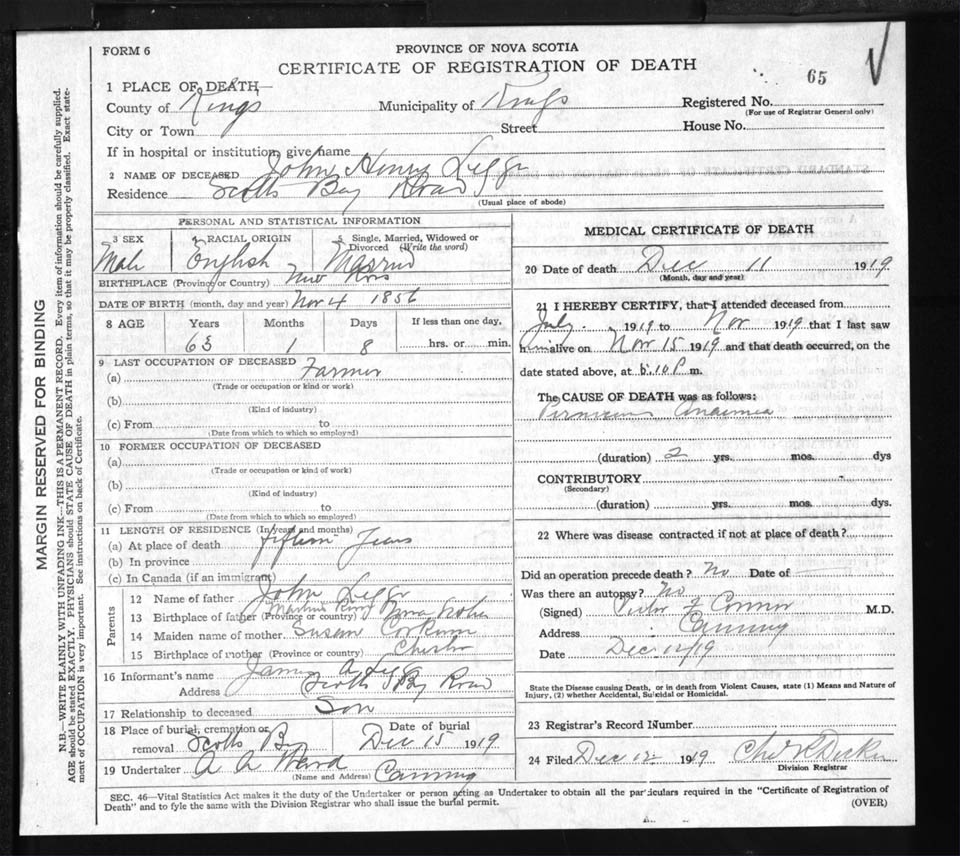 FORM 6
PROVINCE OF NOVA SCOTIA
CERTIFICATE OF REGISTRATION OF DEATH
65
1 PLACE OF DEATH—
County of Kings Municipality of Kings Registered No.
(For use of Registrar General only)
City or Town Street House No.
If in hospital or institution, give name
2 NAME OF DECEASED John Henry Legge
Residence Scotts Bay Road
(Usual place of abode)
PERSONAL AND STATISTICAL INFORMATION
3 SEX 4 RACIAL ORIGIN 5 Single, Married, Widowed or Divorced (Write the word)
Male English Married
BIRTHPLACE (Province or Country) New Ross
DATE OF BIRTH (month, day and year) Nov 4 1856
8 AGE Years Months Days If less than one day,
63 1 8 hrs. or min.
9 LAST OCCUPATION OF DECEASED
(a) Farmer
(Trade or occupation or kind or work)
(b)
(Kind of industry)
(c) From to
(Date from which to which so employed)
10 FORMER OCCUPATION OF DECEASED
(a)
(Trade or occupation or kind of work)
(b)
(Kind of industry)
(c) From to
(Date from which to which so employed)
11 LENGTH OF RESIDENCE (In years and months)
(a) At place of death fifteen Years
(b) In province
(c) In Canada (if an immigrant)
Parents
12 Name of father John Legge
13 Birthplace of father (Province or country) Nova Scotia
14 Maiden name of mother Susan Corkum
15 Birthplace of mother (Province or country) Chester
16 Informant's name James A Legge
Address Scotts Bay Road
17 Relationship to deceased Son
18 Place of burial, cremation or removal Scotts Bay
Date of burial Dec 15 1919
19 Undertaker A A Ward Canning
(Name and Address)
MEDICAL CERTIFICATE OF DEATH
20 Date of death Dec 11 1919
(Month, day and year)
21 I HEREBY CERTIFY, that I attended deceased from
July 1919 to Nov 1919 that I last saw
him alive on Nov 15 1919 and that death occurred, on the
date stated above, at 6.10 P m.
The CAUSE OF DEATH was as follows:
Pernicious Anaemia
(duration) 2 yrs. mos. dys
CONTRIBUTORY
(Secondary)
(duration) yrs. mos. dys.
22 Where was disease contracted if not at place of death?
Did an operation precede death? No Date of
Was there an autopsy? No
(Signed) Connor M.D.
Address Canning
Date Dec 12/19
State the Disease causing Death, or in death from Violent Causes, state (1) Means and Nature of
Injury, (2) whether Accidental, Suicidal or Homicidal.
23 Registrar's Record Number
24 Filed Dec 12 1919
Division Registrar
SEC. 46—Vital Statistics Act makes it the duty of the Undertaker or person acting as Undertaker to obtain all the particulars required in the "Certificate of Registration of
Death" and to fyle the same with the Division Registrar who shall issue the burial permit.
(OVER)
MARGIN RESERVED FOR BINDING
N.B.—WRITE PLAINLY WITH UNFADING INK—THIS IS A PERMANENT RECORD. Every item of information should be carefully supplied.
AGE should be stated EXACTLY. PHYSICIANS should STATE CAUSE OF DEATH in plain terms, so that it may be properly classified. Exact state-
ment of OCCUPATION is very important. See instructions on back of Certificate.